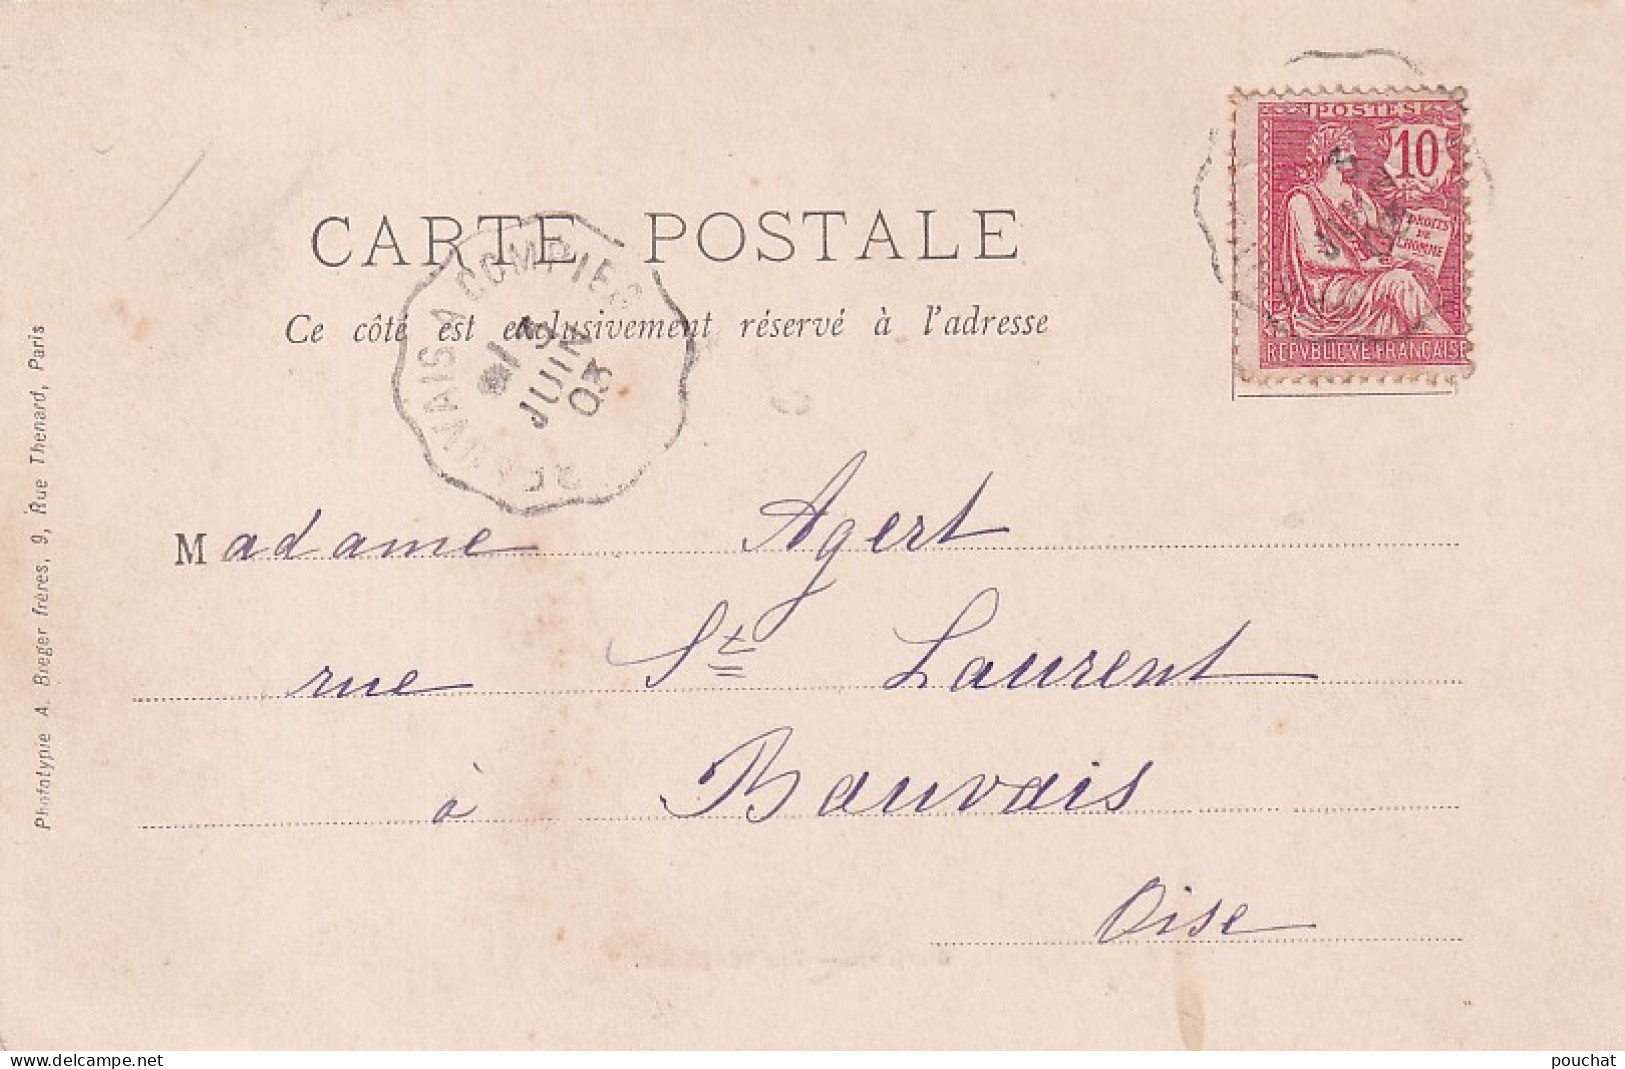 POSTES
10
DROITS
DE
L'HOMME
REPVBLIQVE FRANÇAISE
CARTE POSTALE
Ce côté est exclusivement réservé à l'adresse
BEAUVAIS A COMPIEG
5
JUIN
03
Madame Agert
rue St Laurent
à Bauvais
Oise
Phototypie A. Breger frères, 9, Rue Thenard, Paris
delcampe.net
pouchat